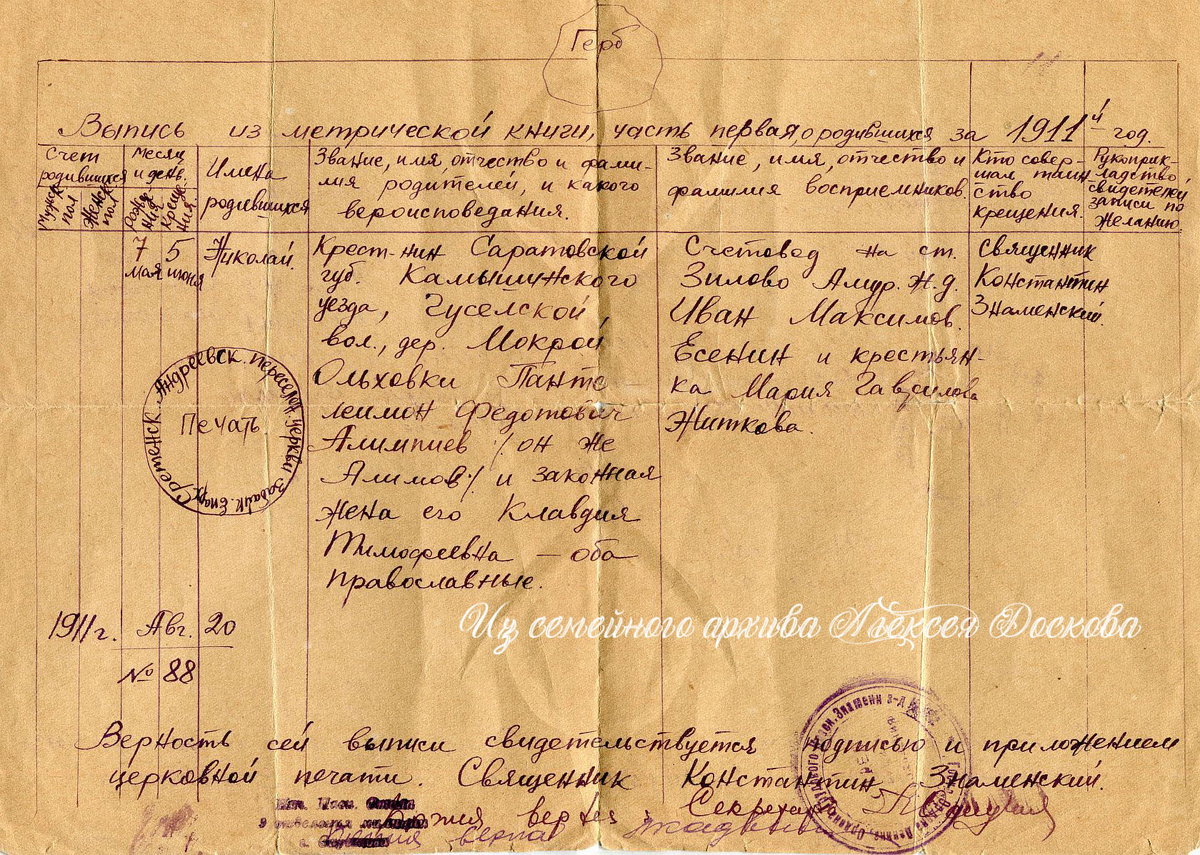 Герб
Выпись из метрической книги, часть первая, о родившихся за 1911й год.
Счет родившихся
Мужск. пол
Женск. пол
Месяц и день.
рождения
крещения
Имена
родившихся
Звание, имя, отчество и фами-
лия родителей, и какого
вероисповедания.
Звание, имя, отчество и
фамилия восприемников.
Кто совер-
шал таин
ство
крещения.
Рукоприк-
ладство
свидетелей
записи по
желанию.
7
мая
5
июня
Николай.
Крест-нин Саратовской
губ. Камышинского
уезда, Гуселской
вол., дер. Мокрой
Ольховки Панте
леимон Федотович
Алимпиев /: он же
Алимов :/ и законная
жена его Клавдия
Тимофеевна – оба
православные.
Счетовод на ст.
Зилово Амур. ж.д.
Иван Максимов.
Есенин и крестьян-
ка Мария Гаврилова
Житкова.
Священник
Константин
Знаменский.
Сретенск. Андреевск. переселен. церкви Забайк. Епарх.
Печать
1911г. Авг. 20
№ 88
Из семейного архива Алексея Доскова
Верность сей выписи свидетельствуется подписью и приложением
церковной печати. Священник Константин Знаменский.
Копия верна
Секретарь
Копия верна